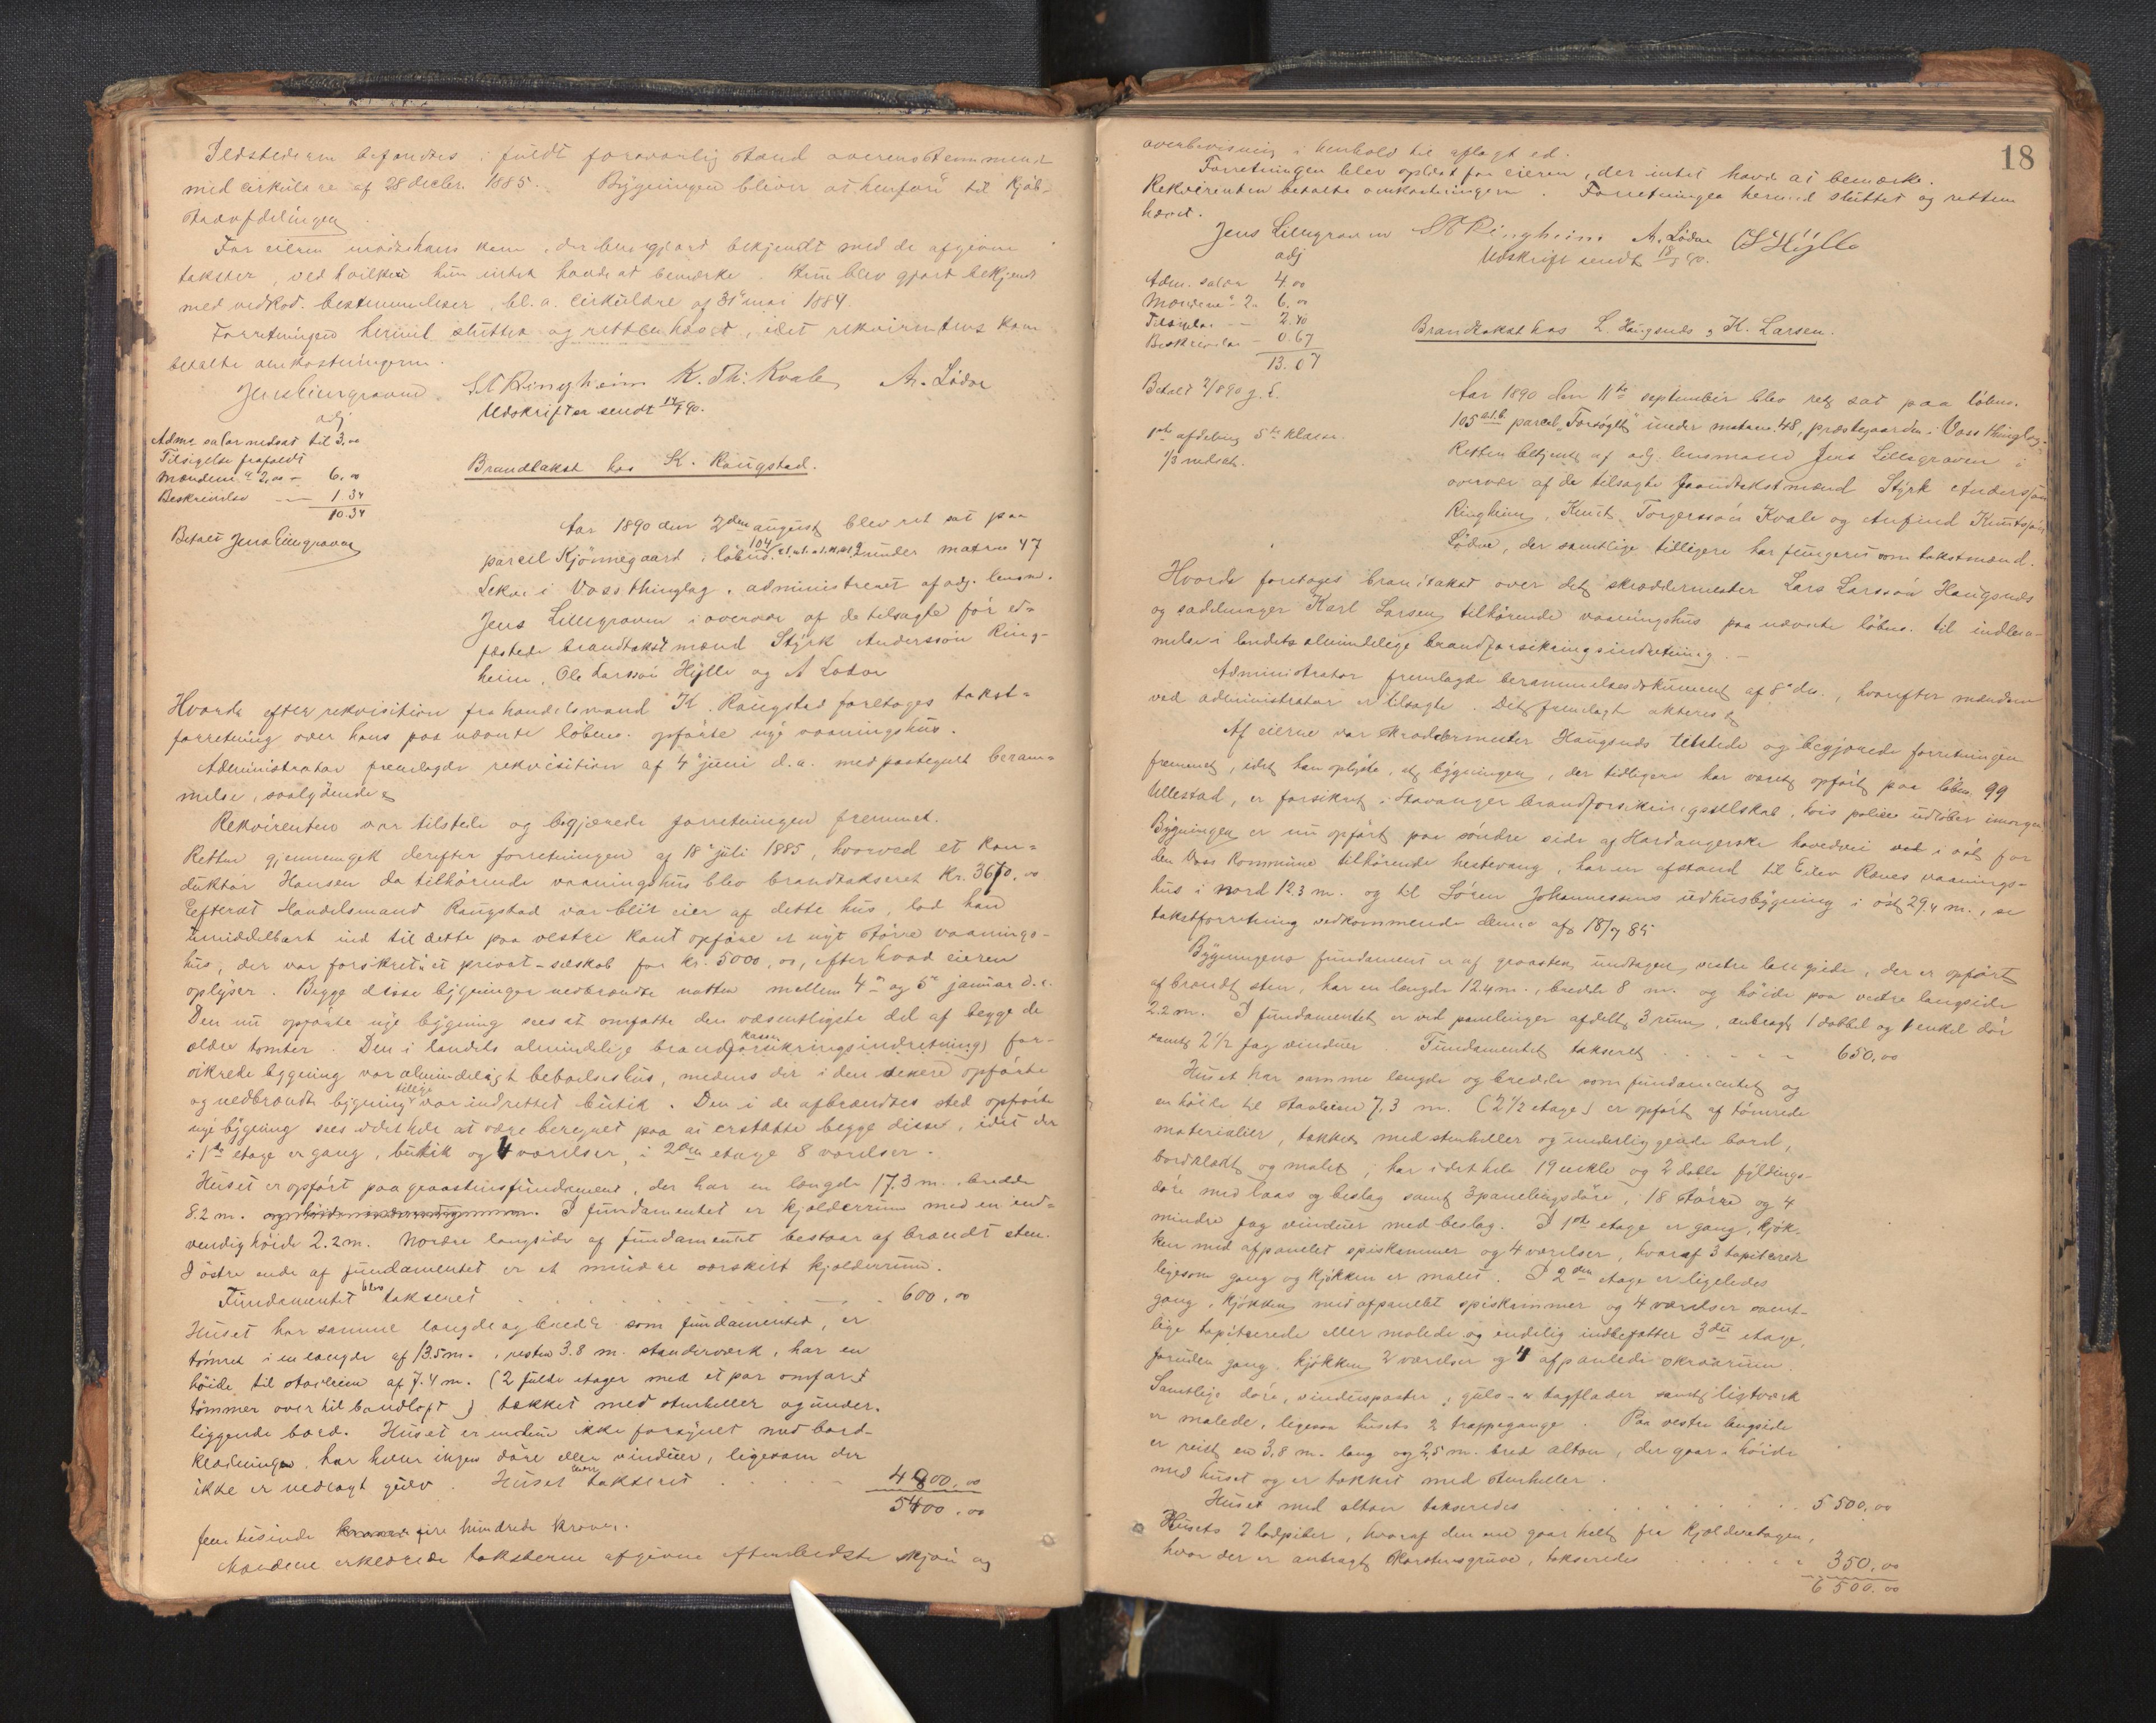 Ildstederne befandtes i fuldt forsvarlig stand overensstemmende
med cirkulære af 28 decbr. 1885. Bygningen bliver at henføre til Kjøb-
stadafdelingen.
For eieren mødte hans kone, der blev gjort bekjendt med de afgivne
takster, ved hvilke hun intet havde at bemærke. Hun blev gjort bekjendt
med vedkod. bestemmelser, bl. a. Cirkulære af 31te mai 1884.
Forretningen hermed sluttet og retten hævet, idet rekvirentens kone
betalte omkostningerne.
Jens Lillegraven S A Ringheim K. Th. Kvale A. Lødve
adj
Udskrifter sendt 14/8 90.
Adms. salær nedsat til 3.00
Tilsigelse frafaldt
Mændene à 2,00 - 6.00
Beskrivelse - 1 34
10.34
Betalt Jens Lillegraven
Brandtakst hos K. Rongstad.
Aar 1890 den 2den august blev ret sat paa
parcel Kjønnegaard i løbno. 104 under matrno 47
Lekve i Voss thinglag, administreret af adj. lensm.
Jens Lillegraven i overvær af de tilsagte før ed-
fæstede brandtakstmænd Styrk Andersson Ring-
heim, Ole Larsson Hylle og A Lødve
Hvorda efter rekvisition fra handelsmand K. Rongstad foretoges takst-
forretning over hans paa nævnte løbeno. opførte nye vaaningshus.
Administrator fremlagde rekvisition af 4de juni d.a. med paategnet beram-
melse, saalydende
Rekvirenten var tilstede og begjærede forretningen fremmet.
Retten gjennemgik derefter forretningen af 18de juli 1885, hvorved et Kon-
duktør Hansen da tilhørende vaaningshus blev brandtakseret Kr. 3670.00
Efterat Handelsmand Rongstad var blit eier af dette hus, lod han
umiddelbart ind til dette paa vestre kant opføre et nyt større vaanings-
hus, der var forsikret i et privat-selskab for kr. 5000,00, efter hvad eieren
oplyser. Begge disse bygninger nedbrændte natten mellem 4de og 5te januar d.a.
Den nu opførte nye bygning sees at omfatte den væsentligste del af begge de
ældre tomter. Den i landets almindelige brandforsikringsindretning kasse for-
sikrede bygning var almindeligt beboelseshus, medens der i den senere opførte
og nedbrændte bygning tillige var indrettet butik. Den i de afbrændtes sted opførte
nye bygning sees idethele at være beregnet paa at erstatte begge disse, idet der
i 1ste etage er gang, butik og 4 værelser, i 2den etage 8 værelser.
Huset er opført paa graastensfundament, der har en længde 17.3 m., bredde
8.2 m. I fundamentet er kjælderrum med en ind-
vendig høide 2.2 m. Nordre langside af fundamentet bestaar af brændt sten.
I østre ende af fundamentet er et mindre særskilt kjælderrum.
Fundamentet blev takseret . . . . . . 600.00
Huset har samme længde og bredde som fundamentet, er
tømret i en længde af 13.5 m., resten 3.8 m. standerværk, har en
høide til stavleien af 7.4 m. (2 fulde etager med et par omfar
tømmer over til bandloft) tækket med stenheller og under-
liggende bord. Huset er endnu ikke forsynet med bord-
klædningen, har heller ingen døre eller vinduer, ligesom der
ikke er nedlagt gulv. Huset takseret . . . 4800.00
5400.00
fem tusinde fire hundrede kroner.
Mændene erklærede taksterne afgivne efter bedste skjøn og
18
overbevisning i henhold til aflagt ed.
Forretningen blev oplæst for eieren, der intet havde at bemærke.
Rekvirenten betalte omkostningerne. Forretningen hermed sluttet og retten
hævet.
Jens Lillegraven S A Ringheim A. Lødve O L Hylle
adj
Udskrift sendt 18/8 90.
Adm. salær 4.00
Mændene à 2. 6.00
Tilsigelse - 2.40
Beskrivelse - 0.67
13.07
Betalt 2/8 90 J. L.
Brandtakst hos L. Haugsnes & K. Larsen.
1ste afdeling 5te klasse.
1/3 nedsat.
Aar 1890 den 11te september blev ret sat paa løbno.
105 parcel "Forsøglet" under matrno. 48, præstegaarden i Voss thinglag.
Retten betjent af adj. lensmand Jens Lillegraven i
overvær af de tilsagte brandtakstmænd Styrk Andersson
Ringheim, Knut Torgersson Kvale og Anfind Knutsson
Lødve, der samtlige tilligere har fungeret som takstmænd.
Hvorda foretoges brandtakst over det skræddermester Lars Larsson Haugsnes
og sadelmager Karl Larsen tilhørende vaaningshus paa nævnte løbno. til indlem-
melse i landets almindelige brandforsikringsindretning.
Administrator fremlagde berammelsesdokument af 8de ds., hvorefter mændene
ved administrator er tilsagte. Det fremlagte akteres
Af eierne var skræddermester Haugsnes tilstede og begjærede forretningen
fremmet, idet han oplyste, at bygningen, der tidligere har været opført paa løbno. 99
Ullestad, er forsikret i Stavanger brandforsikringsselskab, hvis police udløber imorgen.
Bygningen er nu opført paa søndre side af Hardangerske hovedvei i øst for
den Voss Kommune tilhørende hestevang, har en afstand til Eilev Rones vaanings-
hus i nord 12.3 m. og til Søren Johannessens udhusbygning i øst 29.4 m., se
takstforretning vedkommende denne af 18/7 85
Bygningens fundament er af graasten undtagen vestre langside, der er opført
af brændt sten, har en længde 12.4 m., bredde 8 m. og høide paa vestre langside
2.2 m. I fundamentet er ved panelinger afdelt 3 rum, anbragt 1 dobbel og 1 enkel dør
samt 2 1/2 fag vinduer. Fundamentet takseret . . . . 650.00
Huset har samme længde og bredde som fundamentet og
en høide til stavleien 7,3 m. (2 1/2 etage) er opført af tømrede
materialier, tækket med stenheller og underliggende bord,
bordklædt og malet; har i det hele 19 enkle og 2 doble fyldings-
døre med laas og beslag samt 3 panelingsdøre, 18 større og 4
mindre fag vinduer med beslag. I 1ste etage er gang, kjøk-
ken med afpanelet spiskammer og 4 værelser, hvoraf 3 tapiserede
ligesom gang og kjøkken er malet. I 2den etage er ligeledes
gang, kjøkken med afpanelet spiskammer og 4 værelser samt-
lige tapiserede eller malede og endelig indbefatter 3die etage,
foruden gang, kjøkken, 2 værelser og 4 afpanlede skraarum.
Samtlige døre, vinduesposter, gulv- og tagflader samt listværk
er malede, ligesaa husets 2 trappegange. Paa vestre langside
er reist en 3,8 m. lang og 2,5 m. bred altan, der gaar i høide
med huset og er tækket med stenheller.
Huset med altan takseredes . . . . . . 5500.00
Husets 2 ladpiber, hvoraf den ene gaar helt fra kjælderetagen,
hvor der er anbragt skorstensgruve, takseredes . . . . 350.00
6500.00